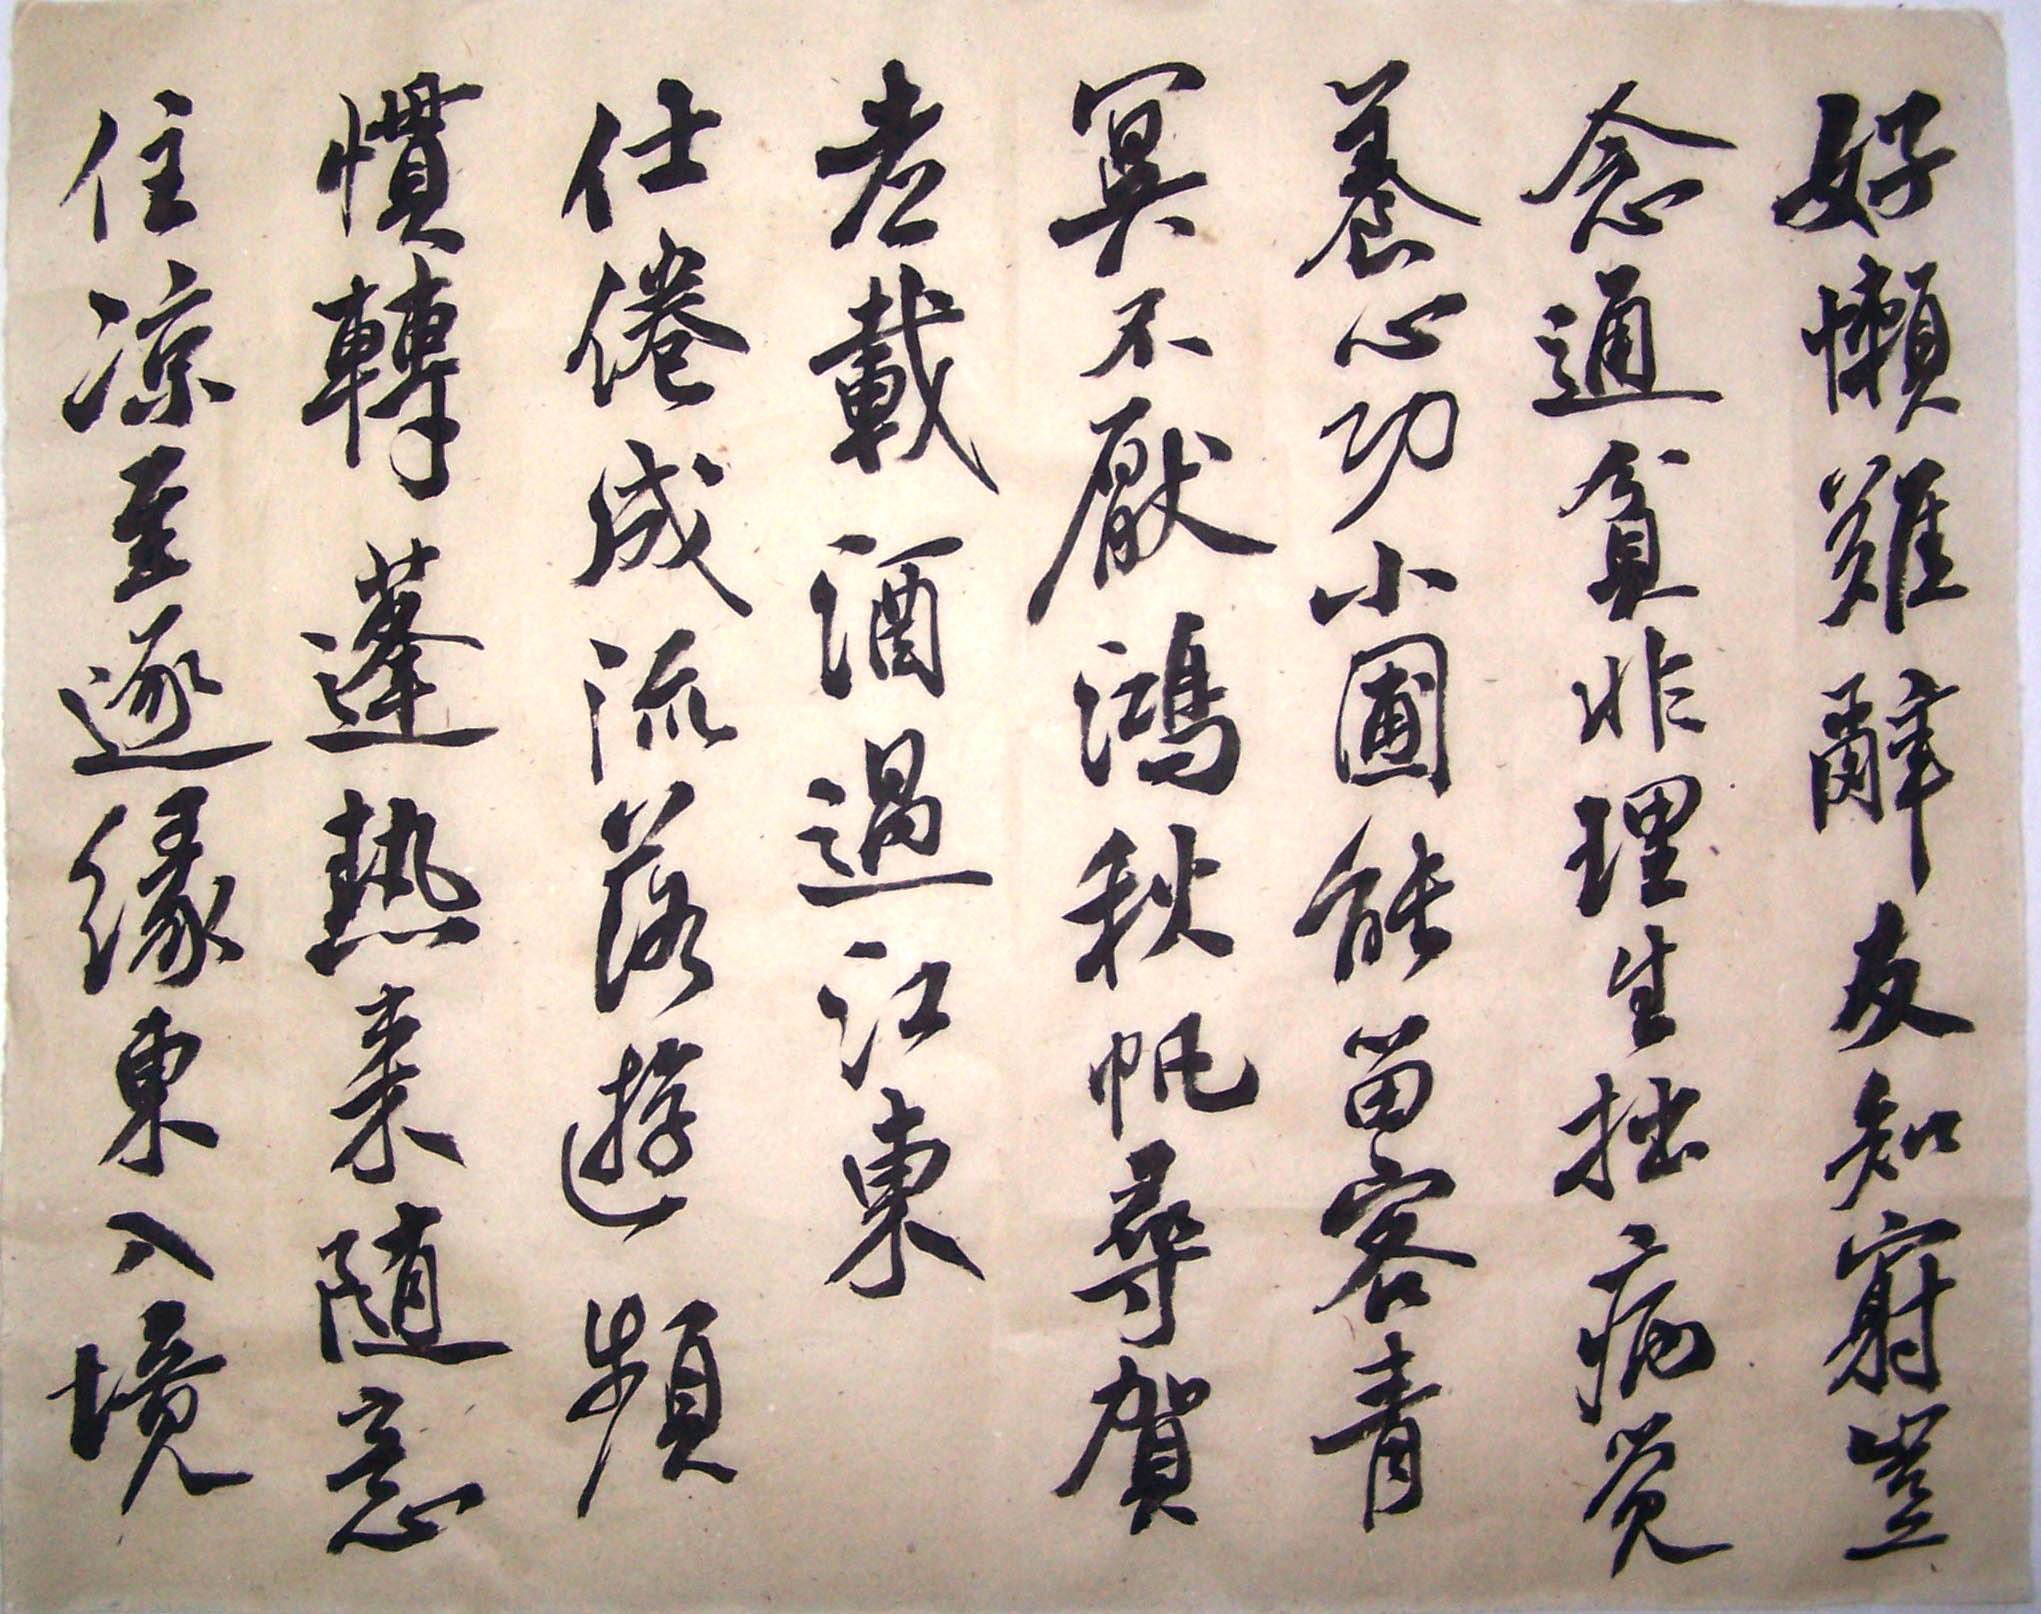 好懶難辭友知窮豈
念通貧非理生拙病覺
養心功小圃能留客青
冥不厭鴻秋帆尋賀
老載酒過江東
仕倦成流落遊頻
慣轉蓬熱來隨意
住涼至逐緣東入境